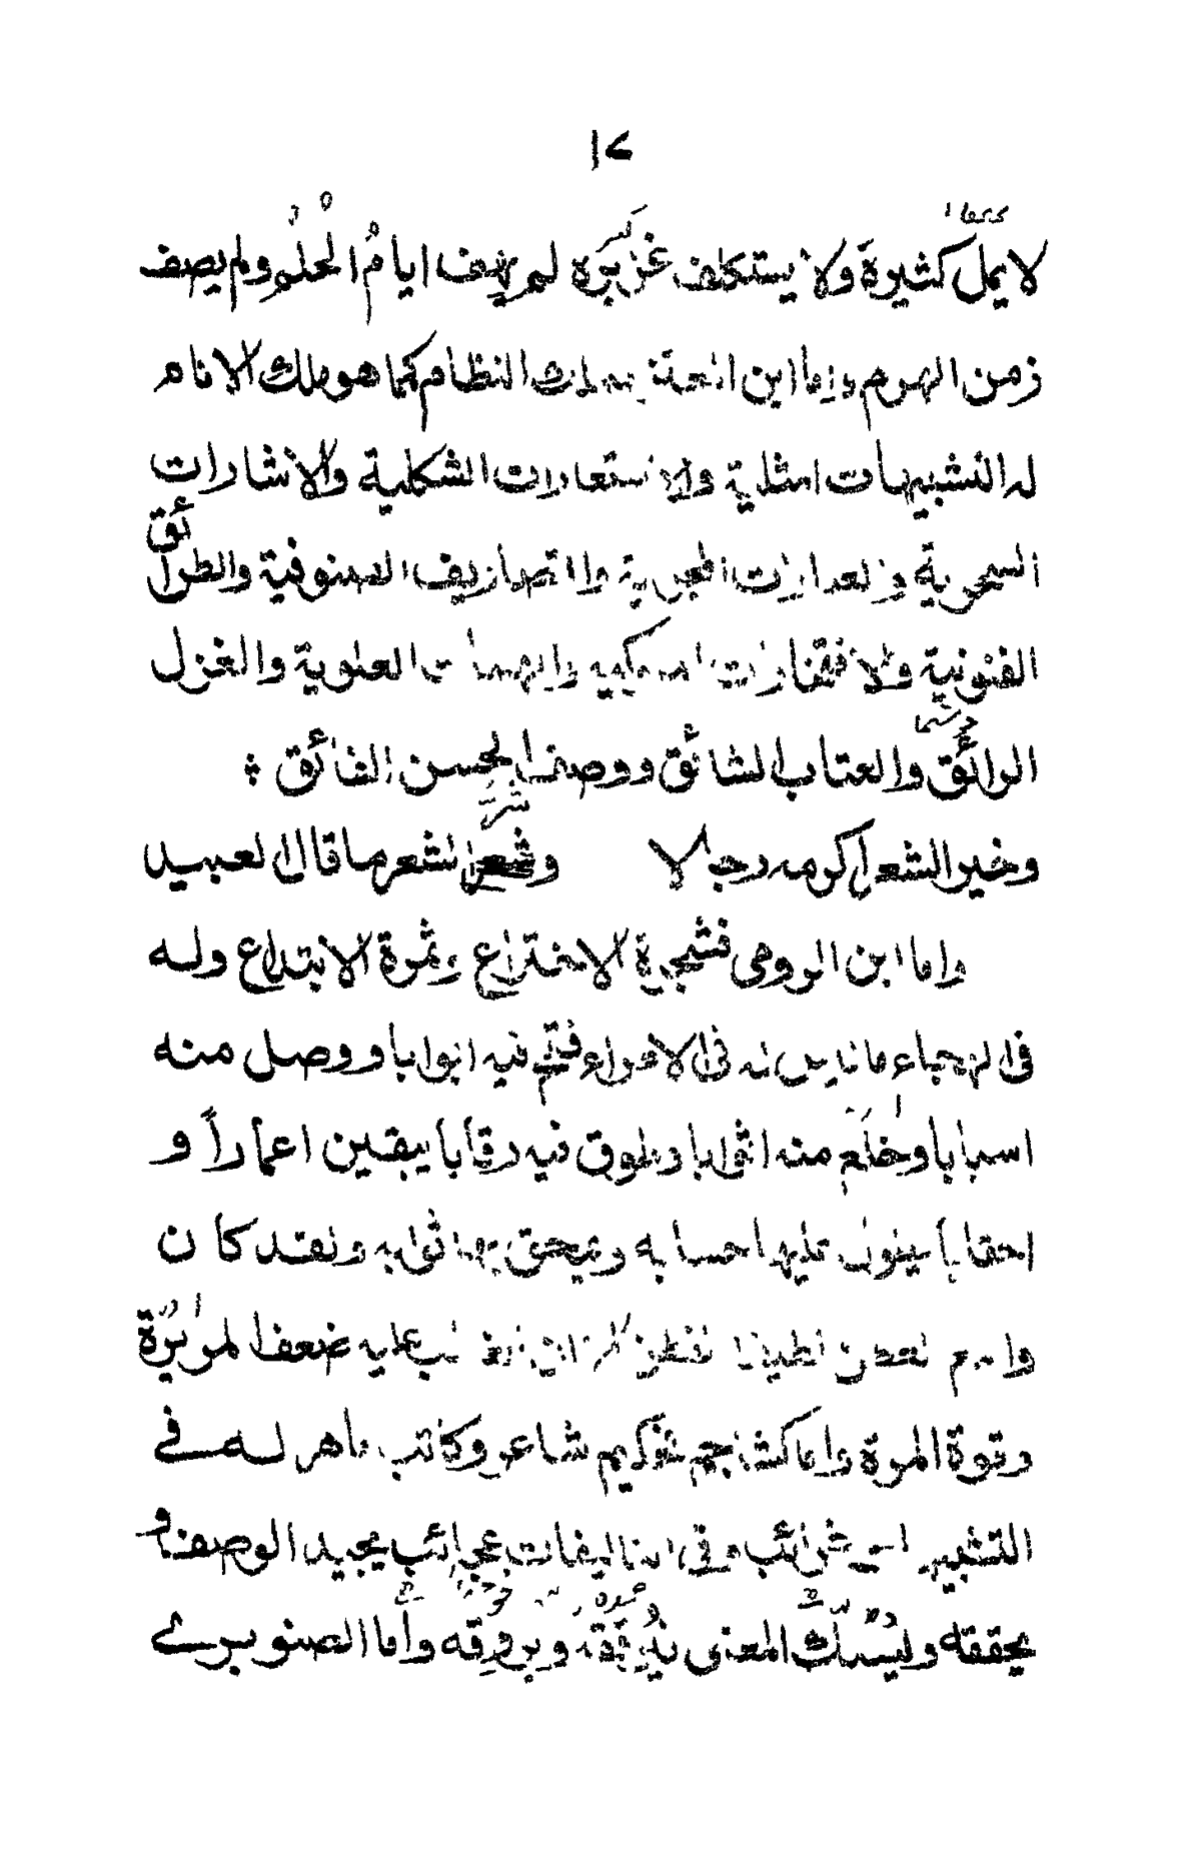 ١٧
لا يمل كثيرة ولا يستكلف غزيره لم يهف ايام الْحلم ولم يصف
زمن الهرم واما ابن المعتز فملك النظام كما هو ملك الانام
له التشبيهات امثلية والاستعارات الشكلية والاشارات
السحرية والعبارات الجهرية والتصاريف الصنوفية والطرائق
الفنونية والافتخارات الملوكية والهمات العلوية والغزل
الرائق والعتاب الشائق ووصف الحسن الفائق :
وخير الشعر اكرمه رجالا وشر الشعر ما قال العبيد
واما ابن الرومي فشجرة الاختراع وثمرة الابتداع وله
في الهجاء ما ليس له في الاطراء فتح فيه ابوابا ووصل منه
اسبابا وخلع منه اثوابا وطوق فيه رقابا يبقين اعمارا و
احقابا عليها حسابه ويمحق بها ثوابه ولقد كان
واسع العطن لطيف الفطن الا ان الغالب عليه ضعف المريرة
وقوة المرة واما كشاجم فحكيم شاعر وكاتب ماهر له في
التشبيه غرائب وفي التاليفات عجائب يجيد الوصف و
يحققه ويسبك المعنى فيرققه ويروقه واما الصنوبري